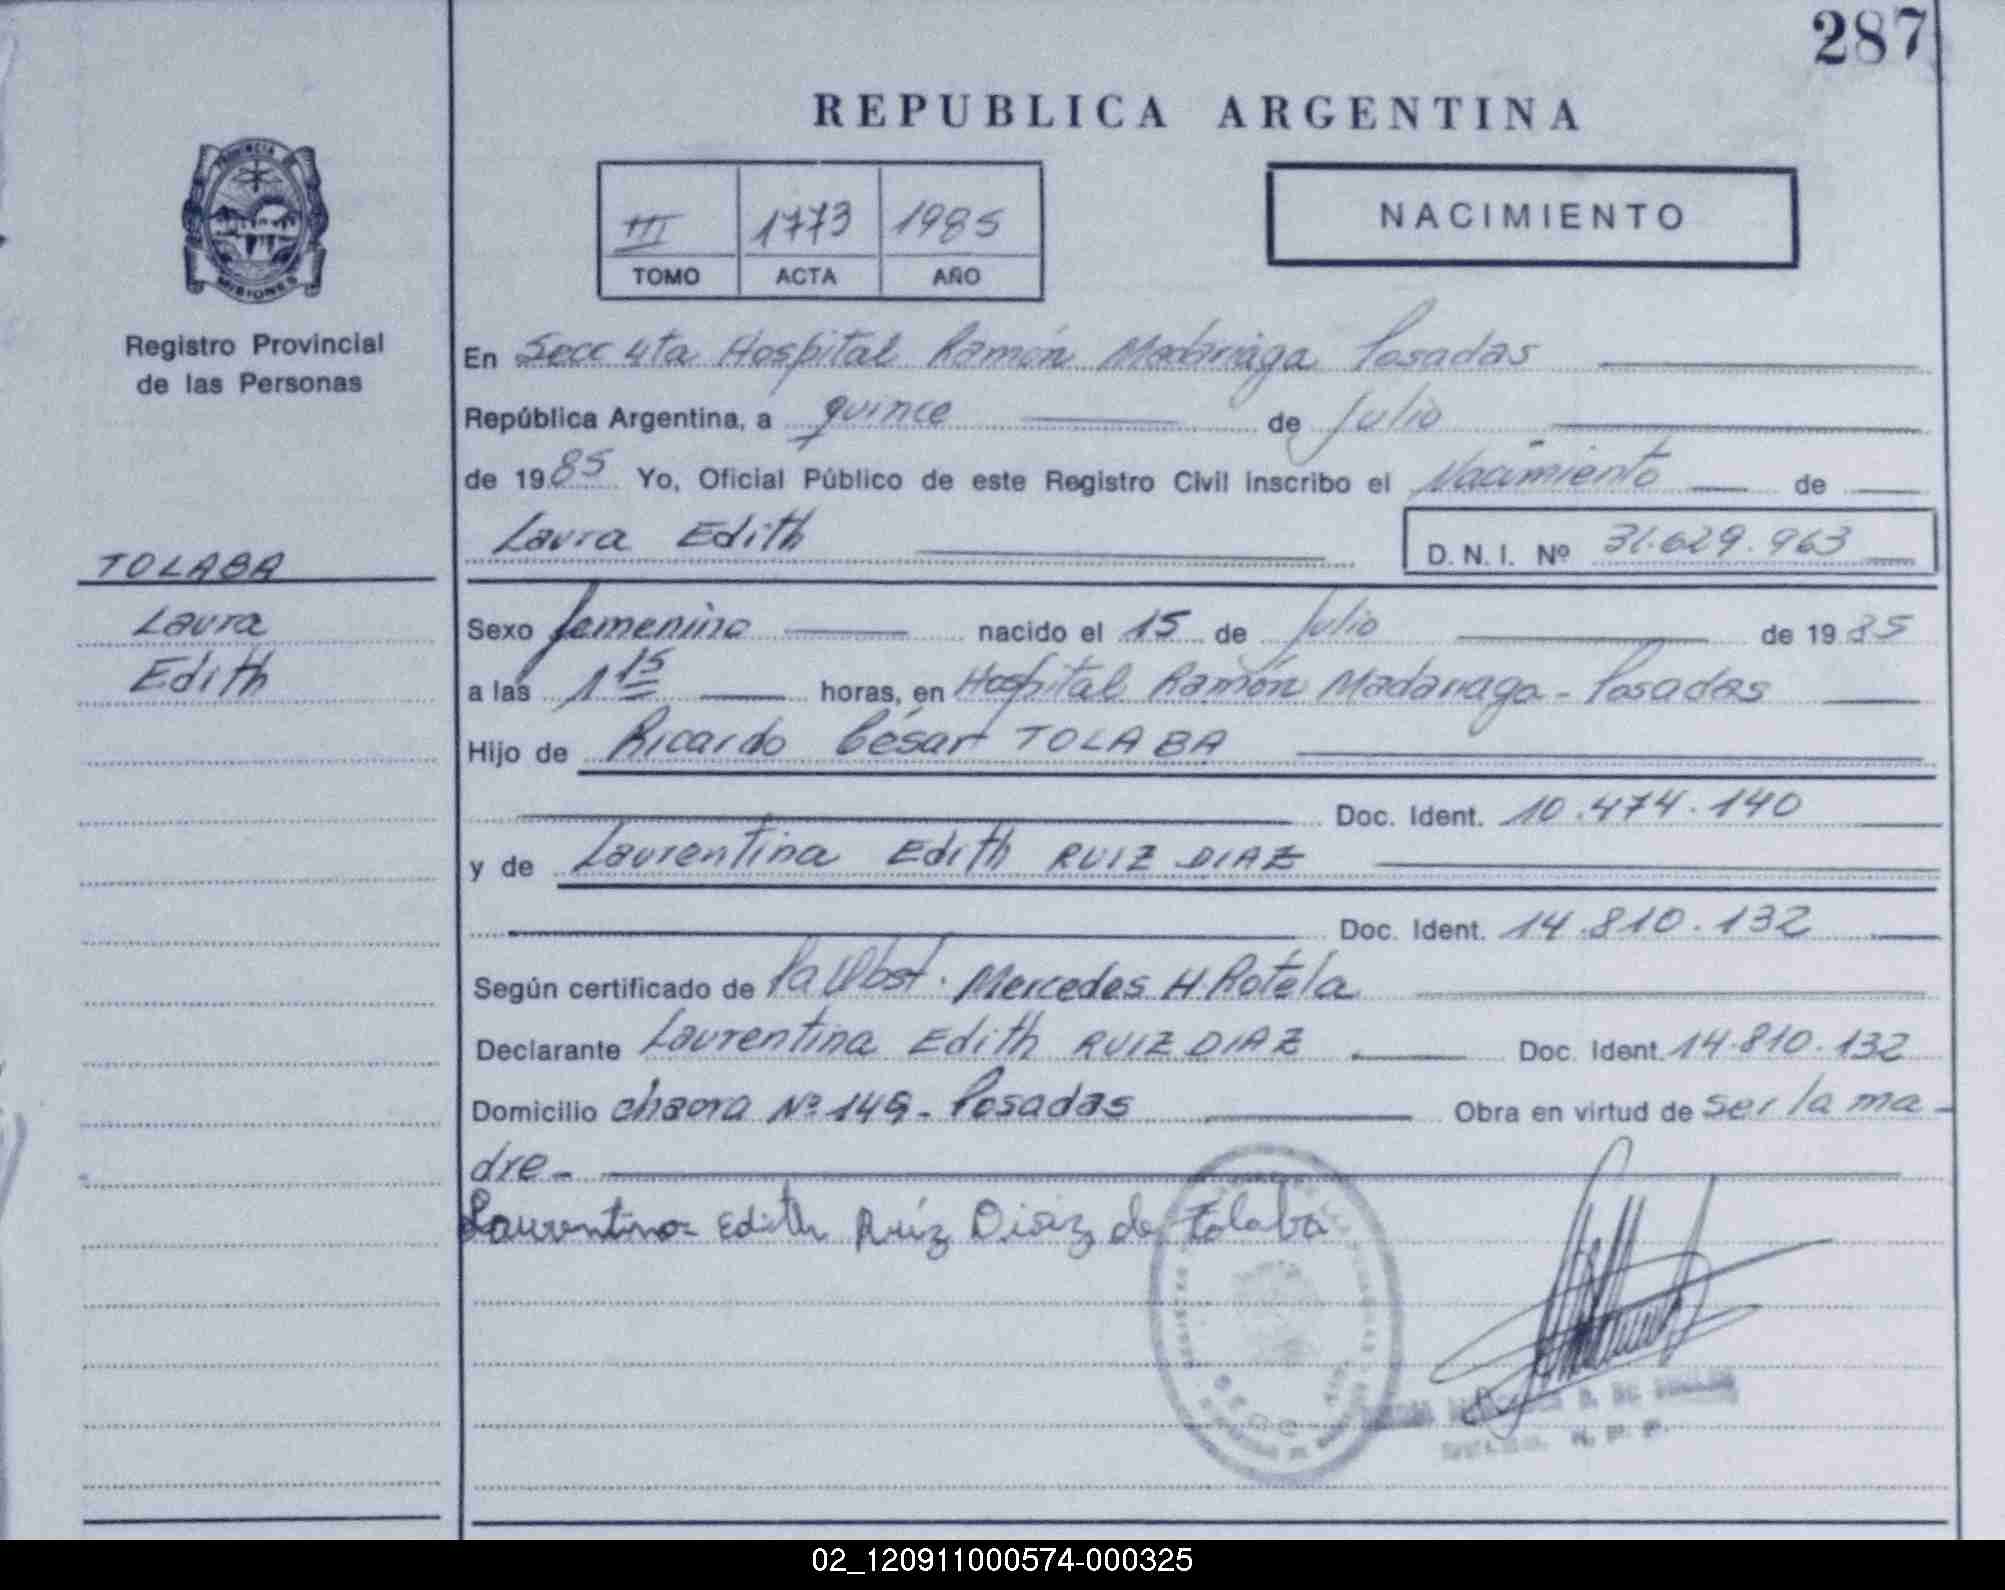 287
REPUBLICA ARGENTINA
PROVINCIA DE
MISIONES
Registro Provincial
de las Personas
III 1773 1985
TOMO ACTA AÑO
NACIMIENTO
En Secc 4ta Hospital Ramón Madariaga Posadas
República Argentina, a quince de Julio
de 1985 Yo, Oficial Público de este Registro Civil inscribo el Nacimiento de
Laura Edith D. N. I. Nº 31.629.963
TOLABA
Laura
Edith
Sexo femenino nacido el 15 de Julio de 1985
a las 1 15 horas, en Hospital Ramón Madariaga - Posadas
Hijo de Ricardo César TOLABA
Doc. Ident. 10.474.140
y de Laurentina Edith RUIZ DIAZ
Doc. Ident. 14.810.132
Según certificado de Obst. Mercedes H. Rotela
Declarante Laurentina Edith RUIZ DIAZ Doc. Ident. 14.810.132
Domicilio chacra Nº 149 - Posadas Obra en virtud de ser la ma-
dre -
Laurentina Edith Ruíz Diaz de Tolaba
02_120911000574-000325